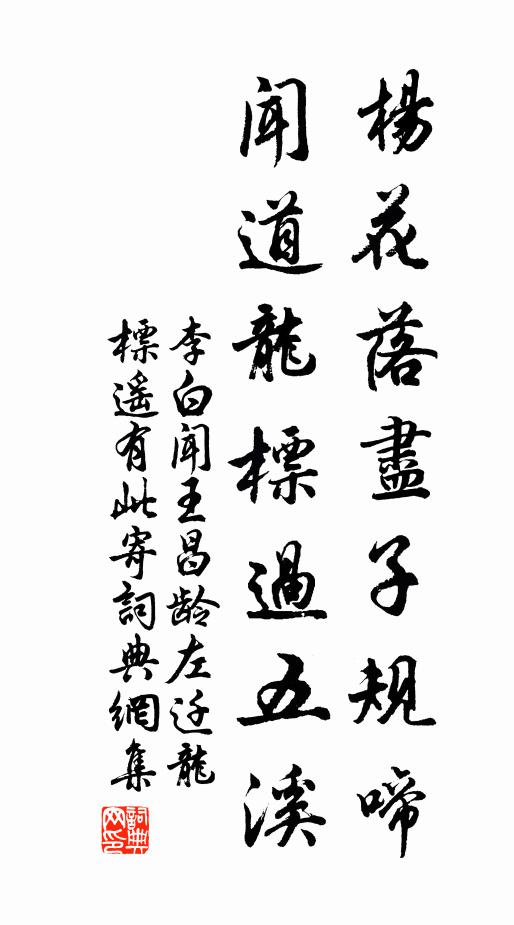 楊花落盡子規啼
聞道龍標過五溪
李白聞王昌齡左迁龍
標遥有此寄詞典網集
詞典网印